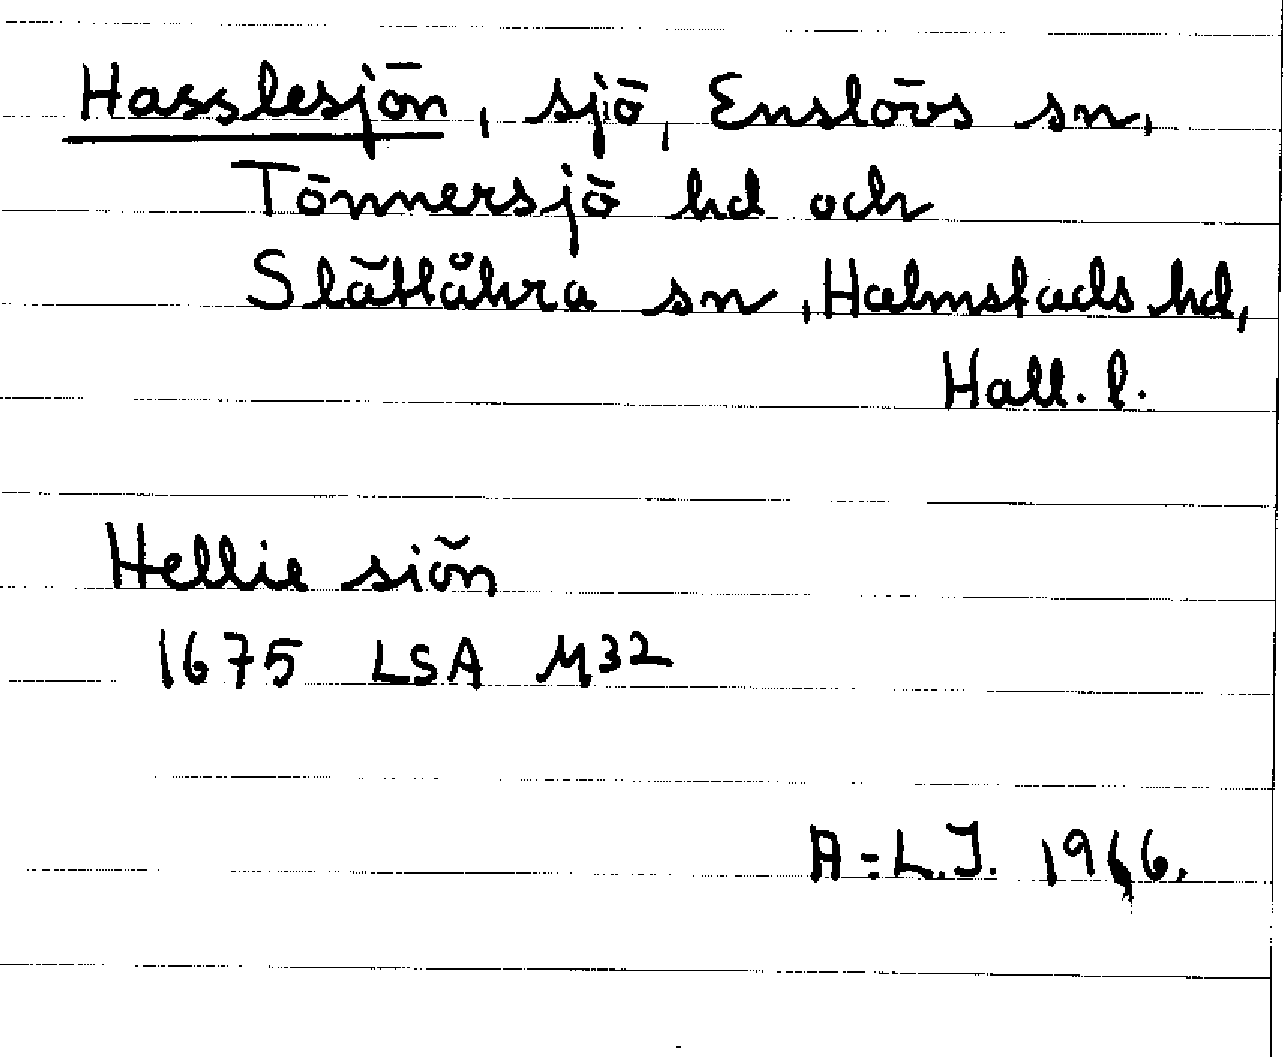 Hasslesjön, sjö, Enslövs sn,
Tönnersjö hd och
Slättåkra sn, Halmstads hd,
Hall. l.
Hellie siön
1675 LSA M32
A-L.J. 1966.